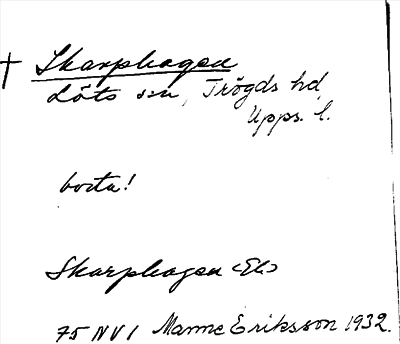 † Skarphagen
Löts sn, Trögds hd,
Upps. l.
borta!
Skarphagen <Ek>
75 NV1 Manne Eriksson 1932.